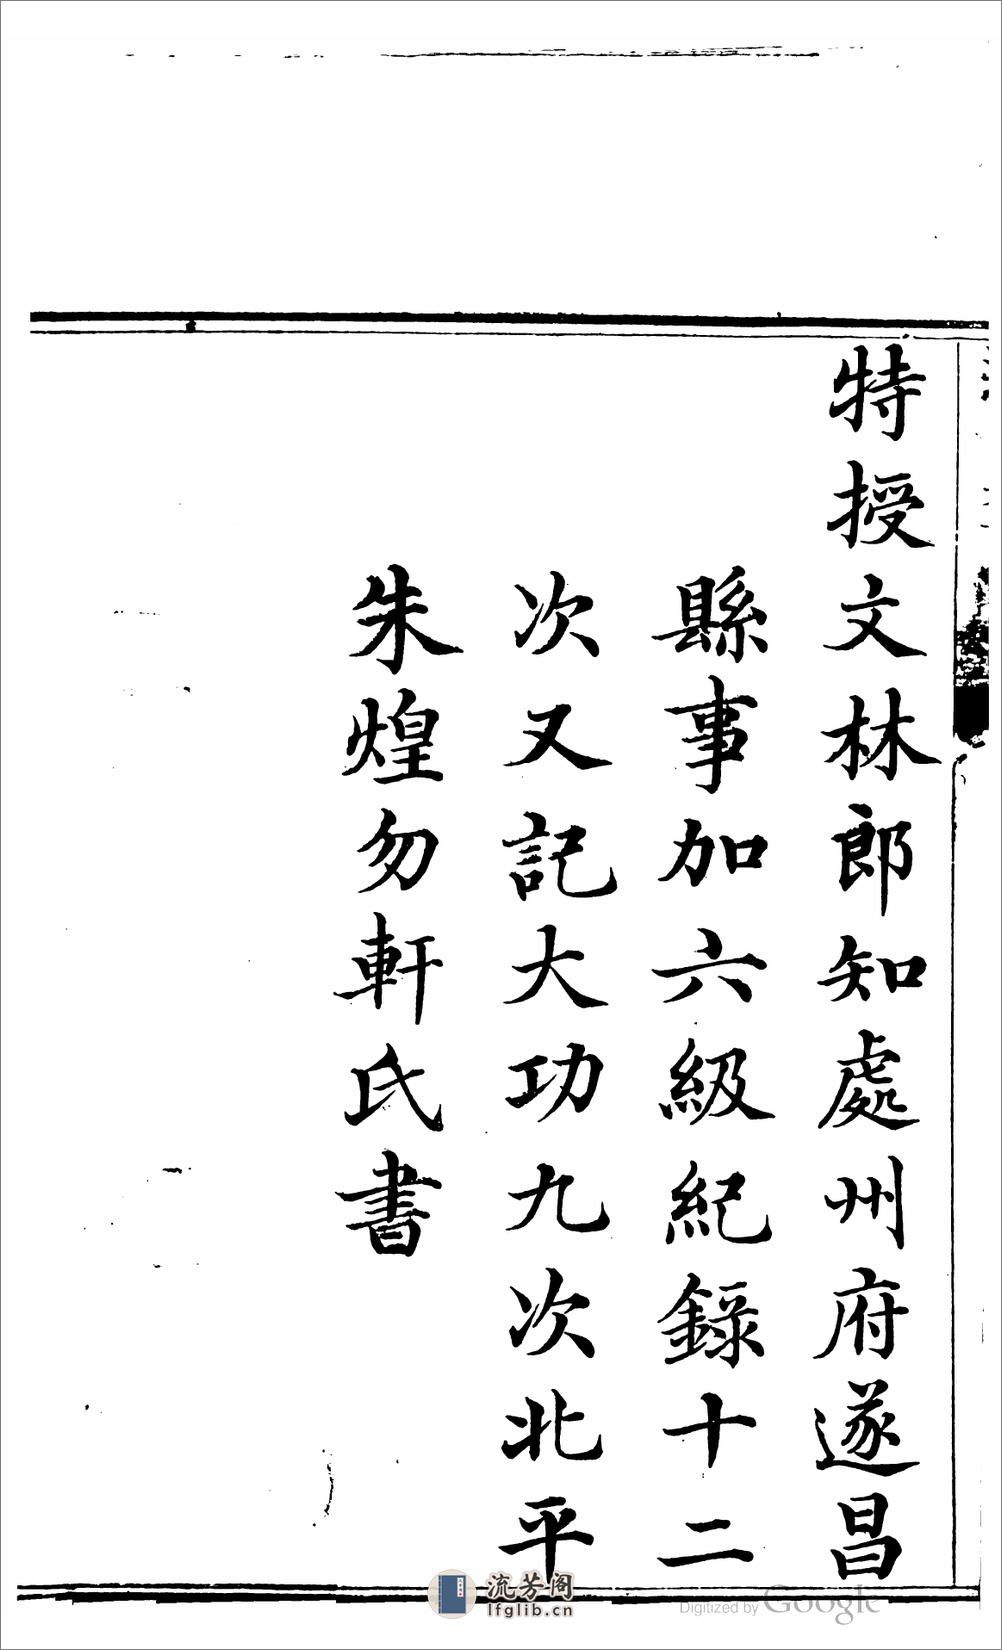 特授文林郎知處州府遂昌
縣事加六級紀錄十二
次又記大功九次北平
朱煌勿軒氏書
流芳阁
lfglib.cn
Digitized by Google